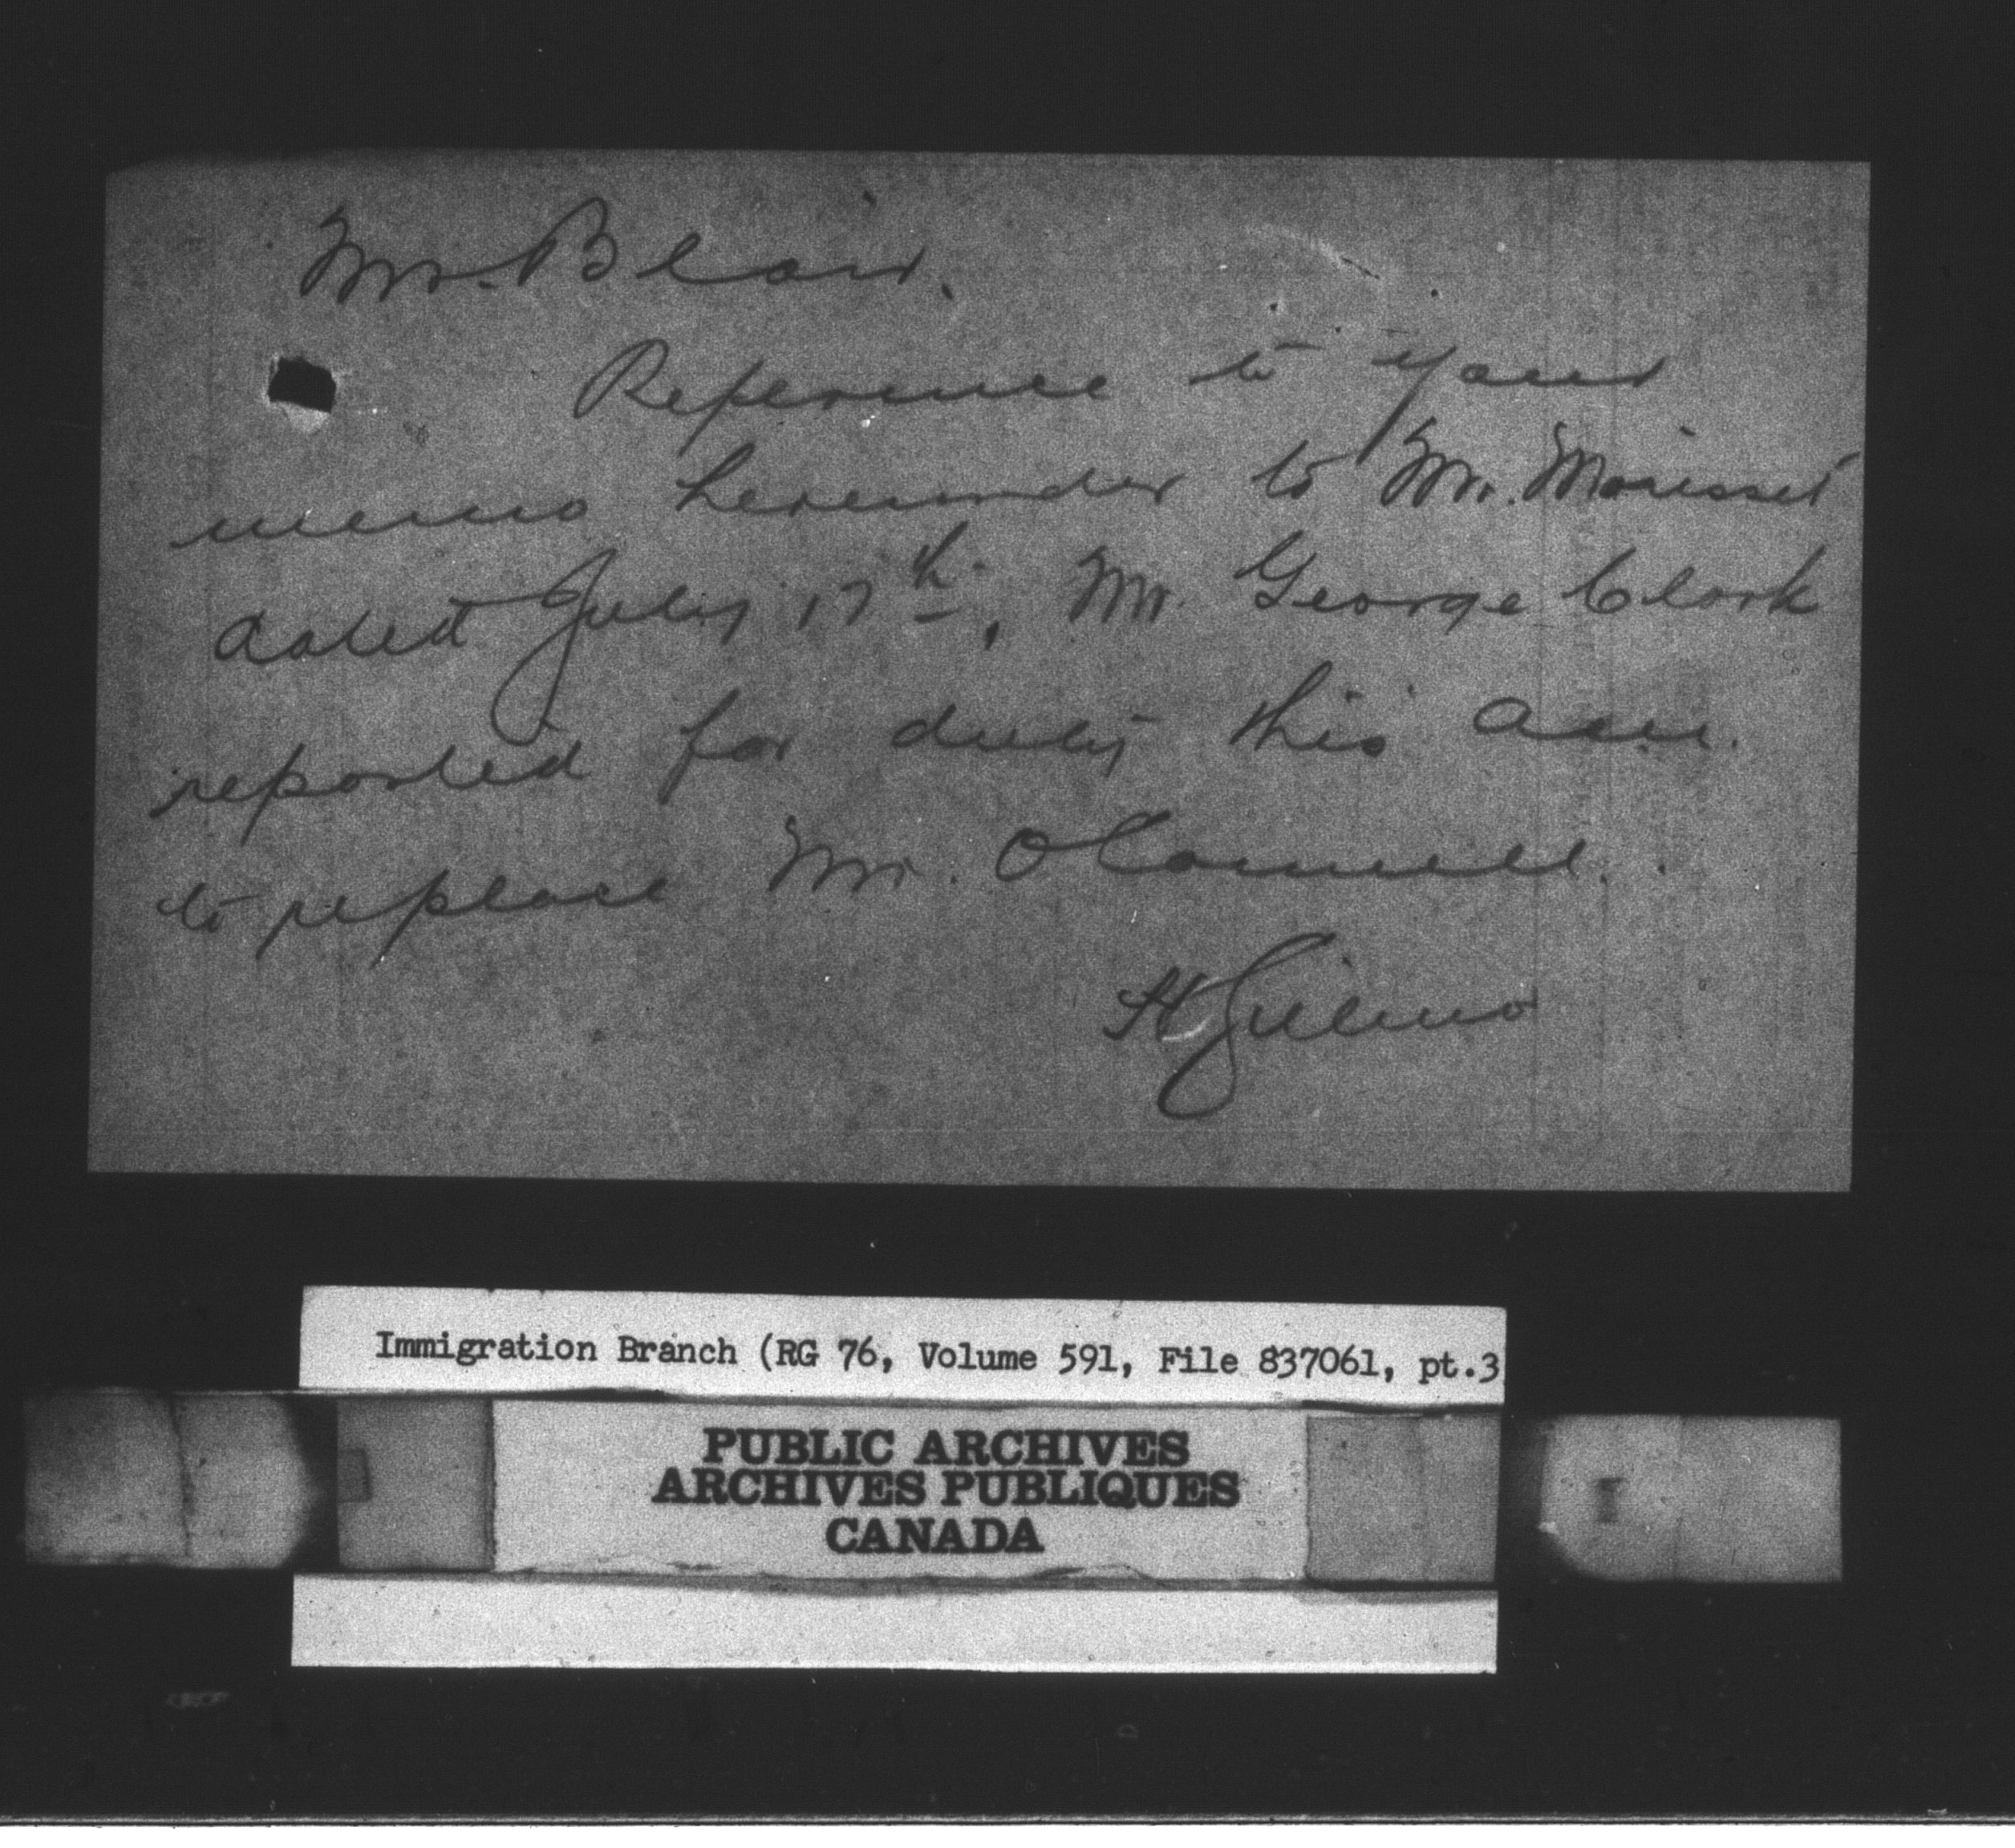 Mr. Blair.
Reference to your
memo hereunder to Mr. Morisset
dated July 17th, Mr. George Clark
reported for duty this a.m.
to replace Mr. O'Connell.
H Gilmo
Immigration Branch (RG 76, Volume 591, File 837061, pt.3
PUBLIC ARCHIVES
ARCHIVES PUBLIQUES
CANADA